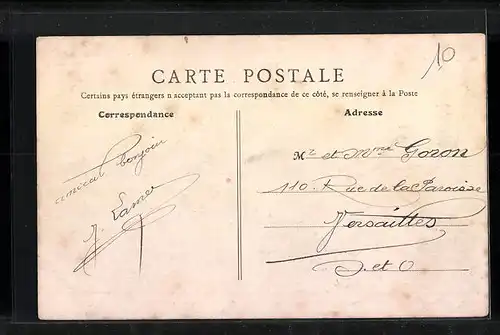 10
CARTE POSTALE
Certains pays étrangers n acceptant pas la correspondance de ce côté, se renseigner à la Poste
Correspondance
Adresse
amical bonjour
Mr et Mme Goron
110 Rue de la Paroisse
Versailles
S. et O